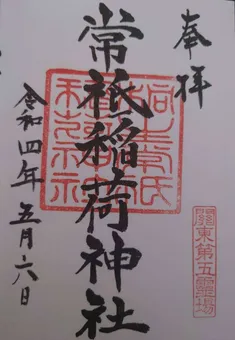 奉拝
關東第五靈場
常祇稲荷神社
令和四年 五月六日